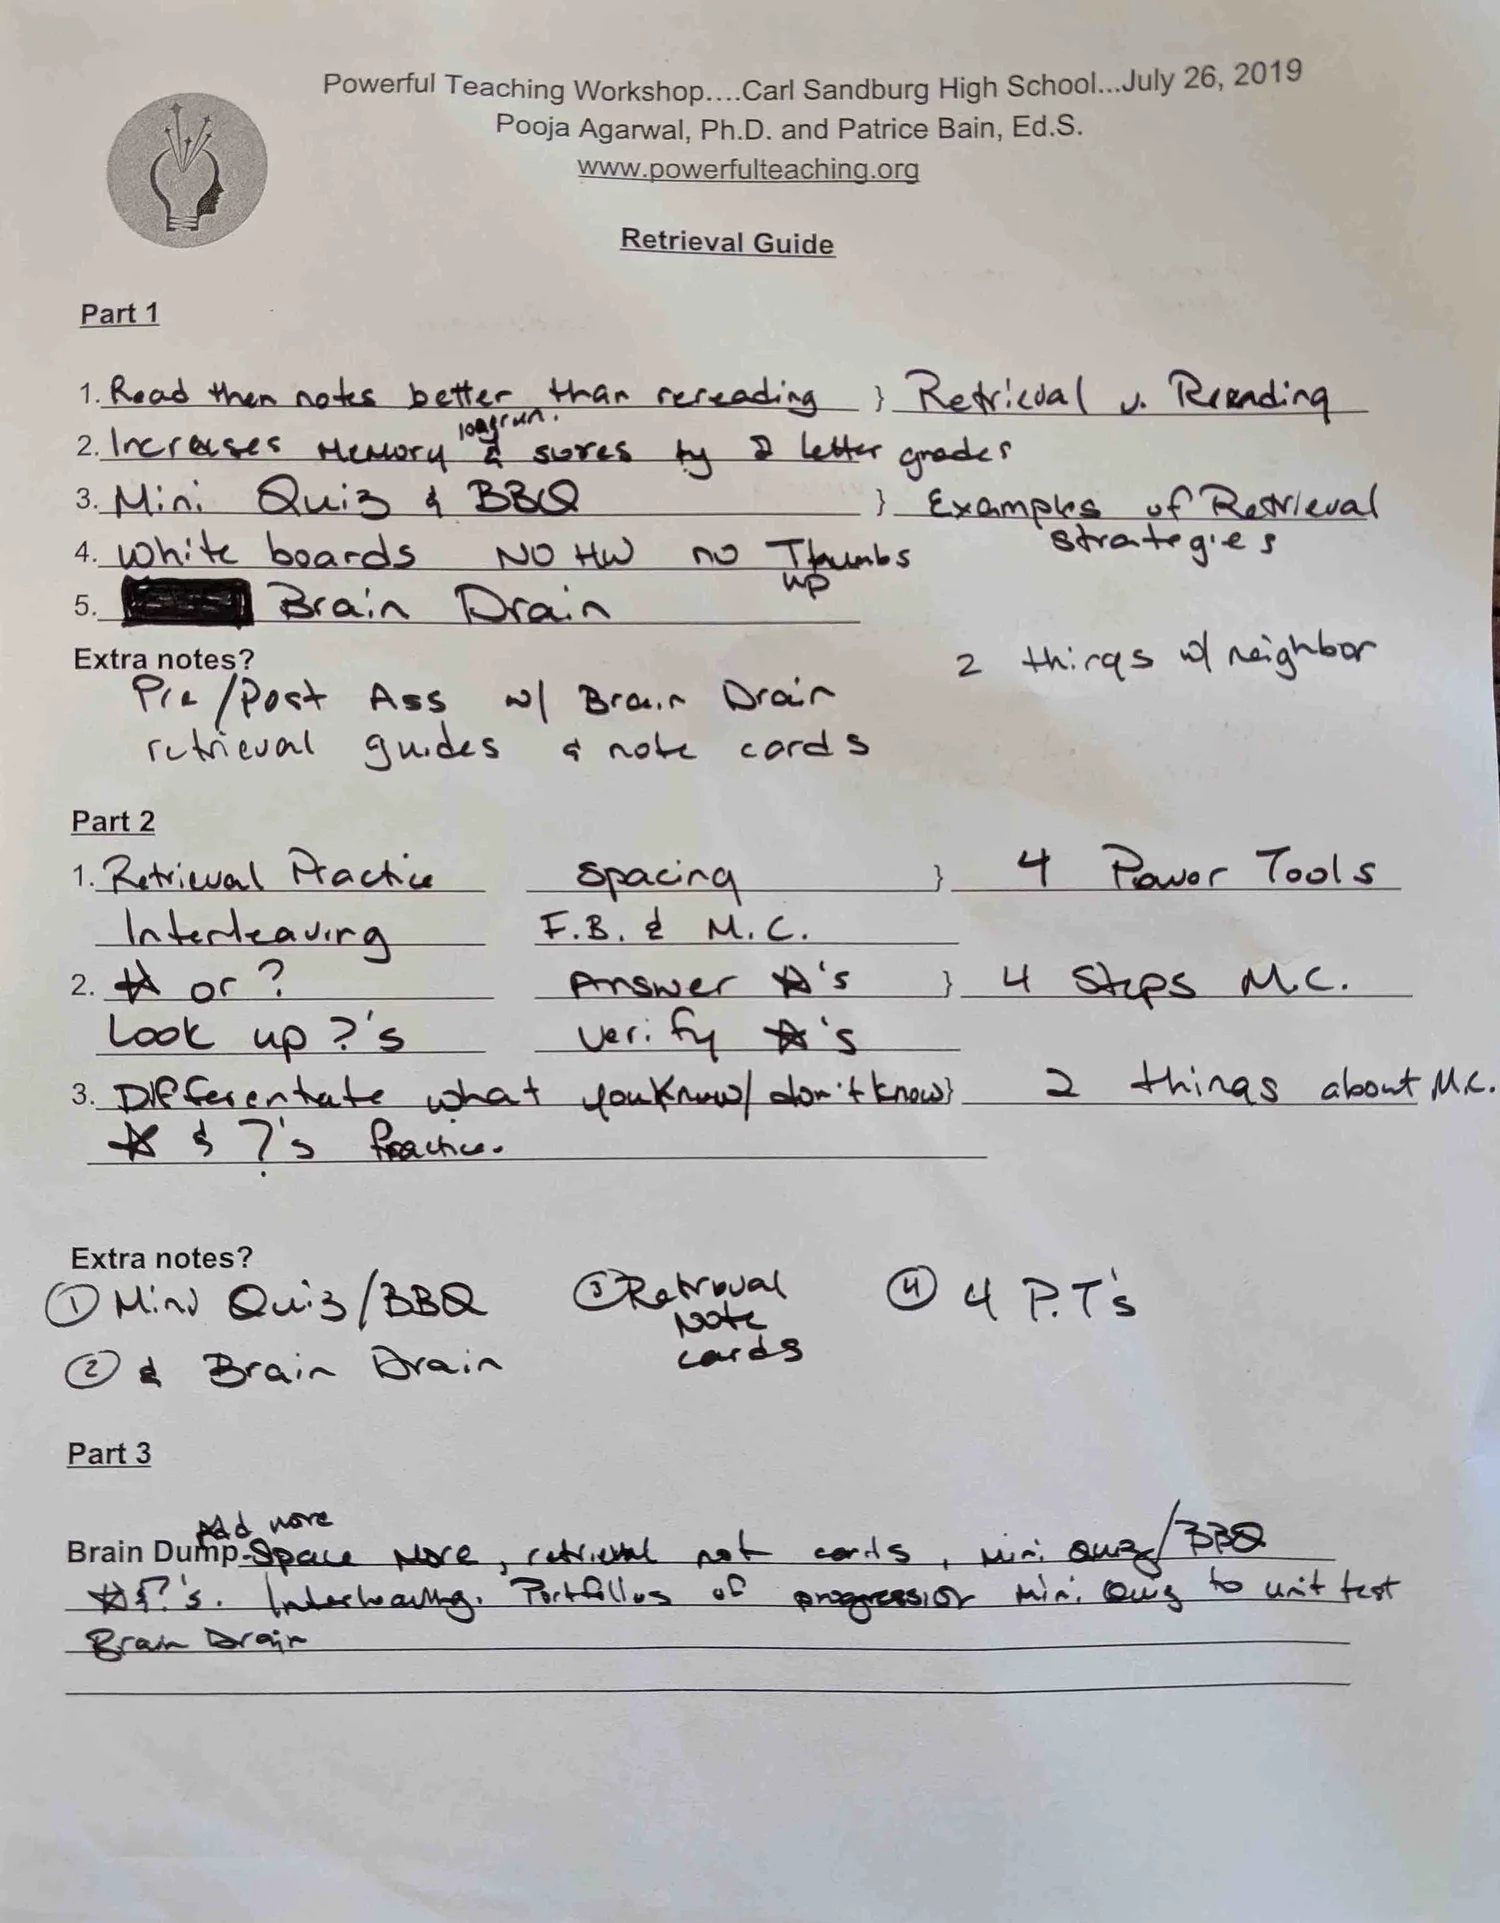 Powerful Teaching Workshop....Carl Sandburg High School...July 26, 2019
Pooja Agarwal, Ph.D. and Patrice Bain, Ed.S.
www.powerfulteaching.org
Retrieval Guide
Part 1
1. Read then notes better than rereading } Retrieval v. Rereading
longrun.
2. Increases Memory & scores by 2 letter grades
3. Mini Quiz & BBQ } Examples of Retrieval
strategies
4. White boards NO HW no Thumbs
up
5. Brain Drain
Extra notes? 2 things w/ neighbor
Pre/Post Ass w/ Brain Drain
retrieval guides & note cards
Part 2
1. Retrieval Practice Spacing } 4 Power Tools
Interleaving F.B. & M.C.
2. ☆ or ? Answer ☆'s } 4 Steps M.C.
Look up ?'s Verify ☆'s
3. Differentate what you know/don't know } 2 things about M.C.
☆ & ?'s Practice.
Extra notes?
① Mini Quiz/BBQ ③ Retrieval ④ 4 P.T's
Note
② & Brain Drain cards
Part 3
Add more
Brain Dump-Space More, retrieval not cards, mini Quiz/BBQ
☆ & ?'s. Interleaving. Portfolios of progression mini Quiz to unit test
Brain Drain